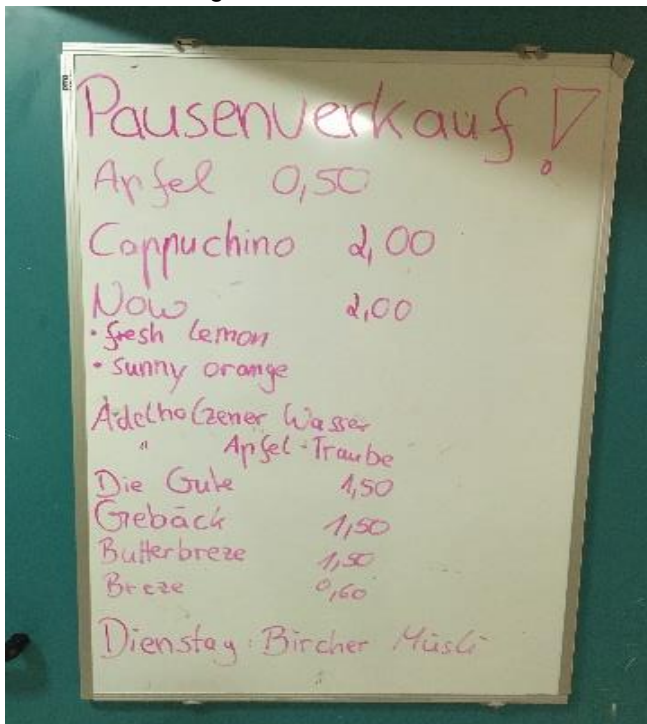 Pausenverkauf!
Apfel 0,50
Cappuchino 2,00
Now 2,00
• fresh Lemon
• sunny orange
Adelholzener Wasser
" Apfel-Traube
Die Gute 1,50
Gebäck 1,50
Butterbreze 1,50
Breze 0,60
Dienstag: Bircher Müsli